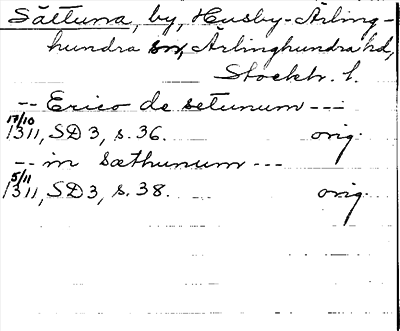 Sättuna, by, Husby-Ärling-
hundra sn, Ärlinghundra hd,
Stockh. l.
-- Erico de setunum ---
17/10
1311, SD 3, s. 36. orig.
-- in sæthunum ---
5/11
1311, SD 3, s. 38. orig.